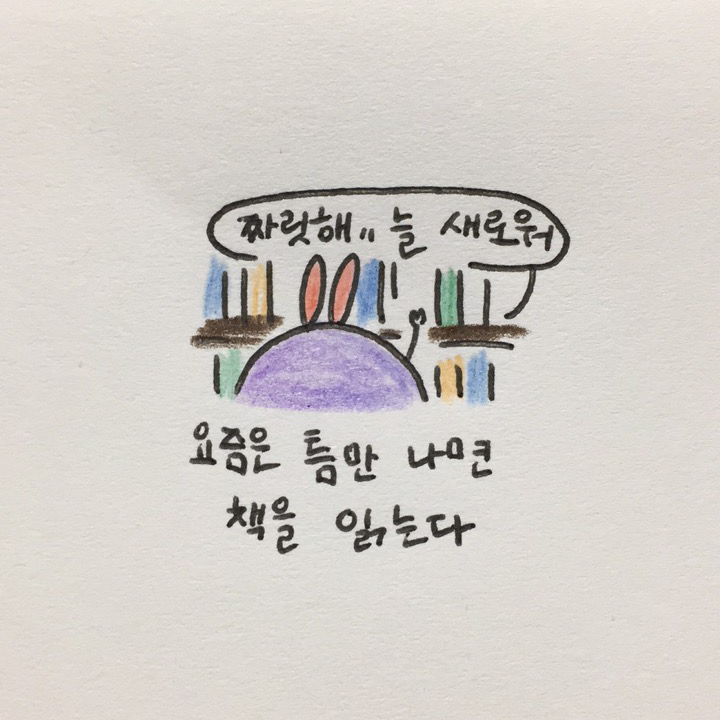 짜릿해.. 늘 새로워
요즘은 틈만 나면
책을 읽는다